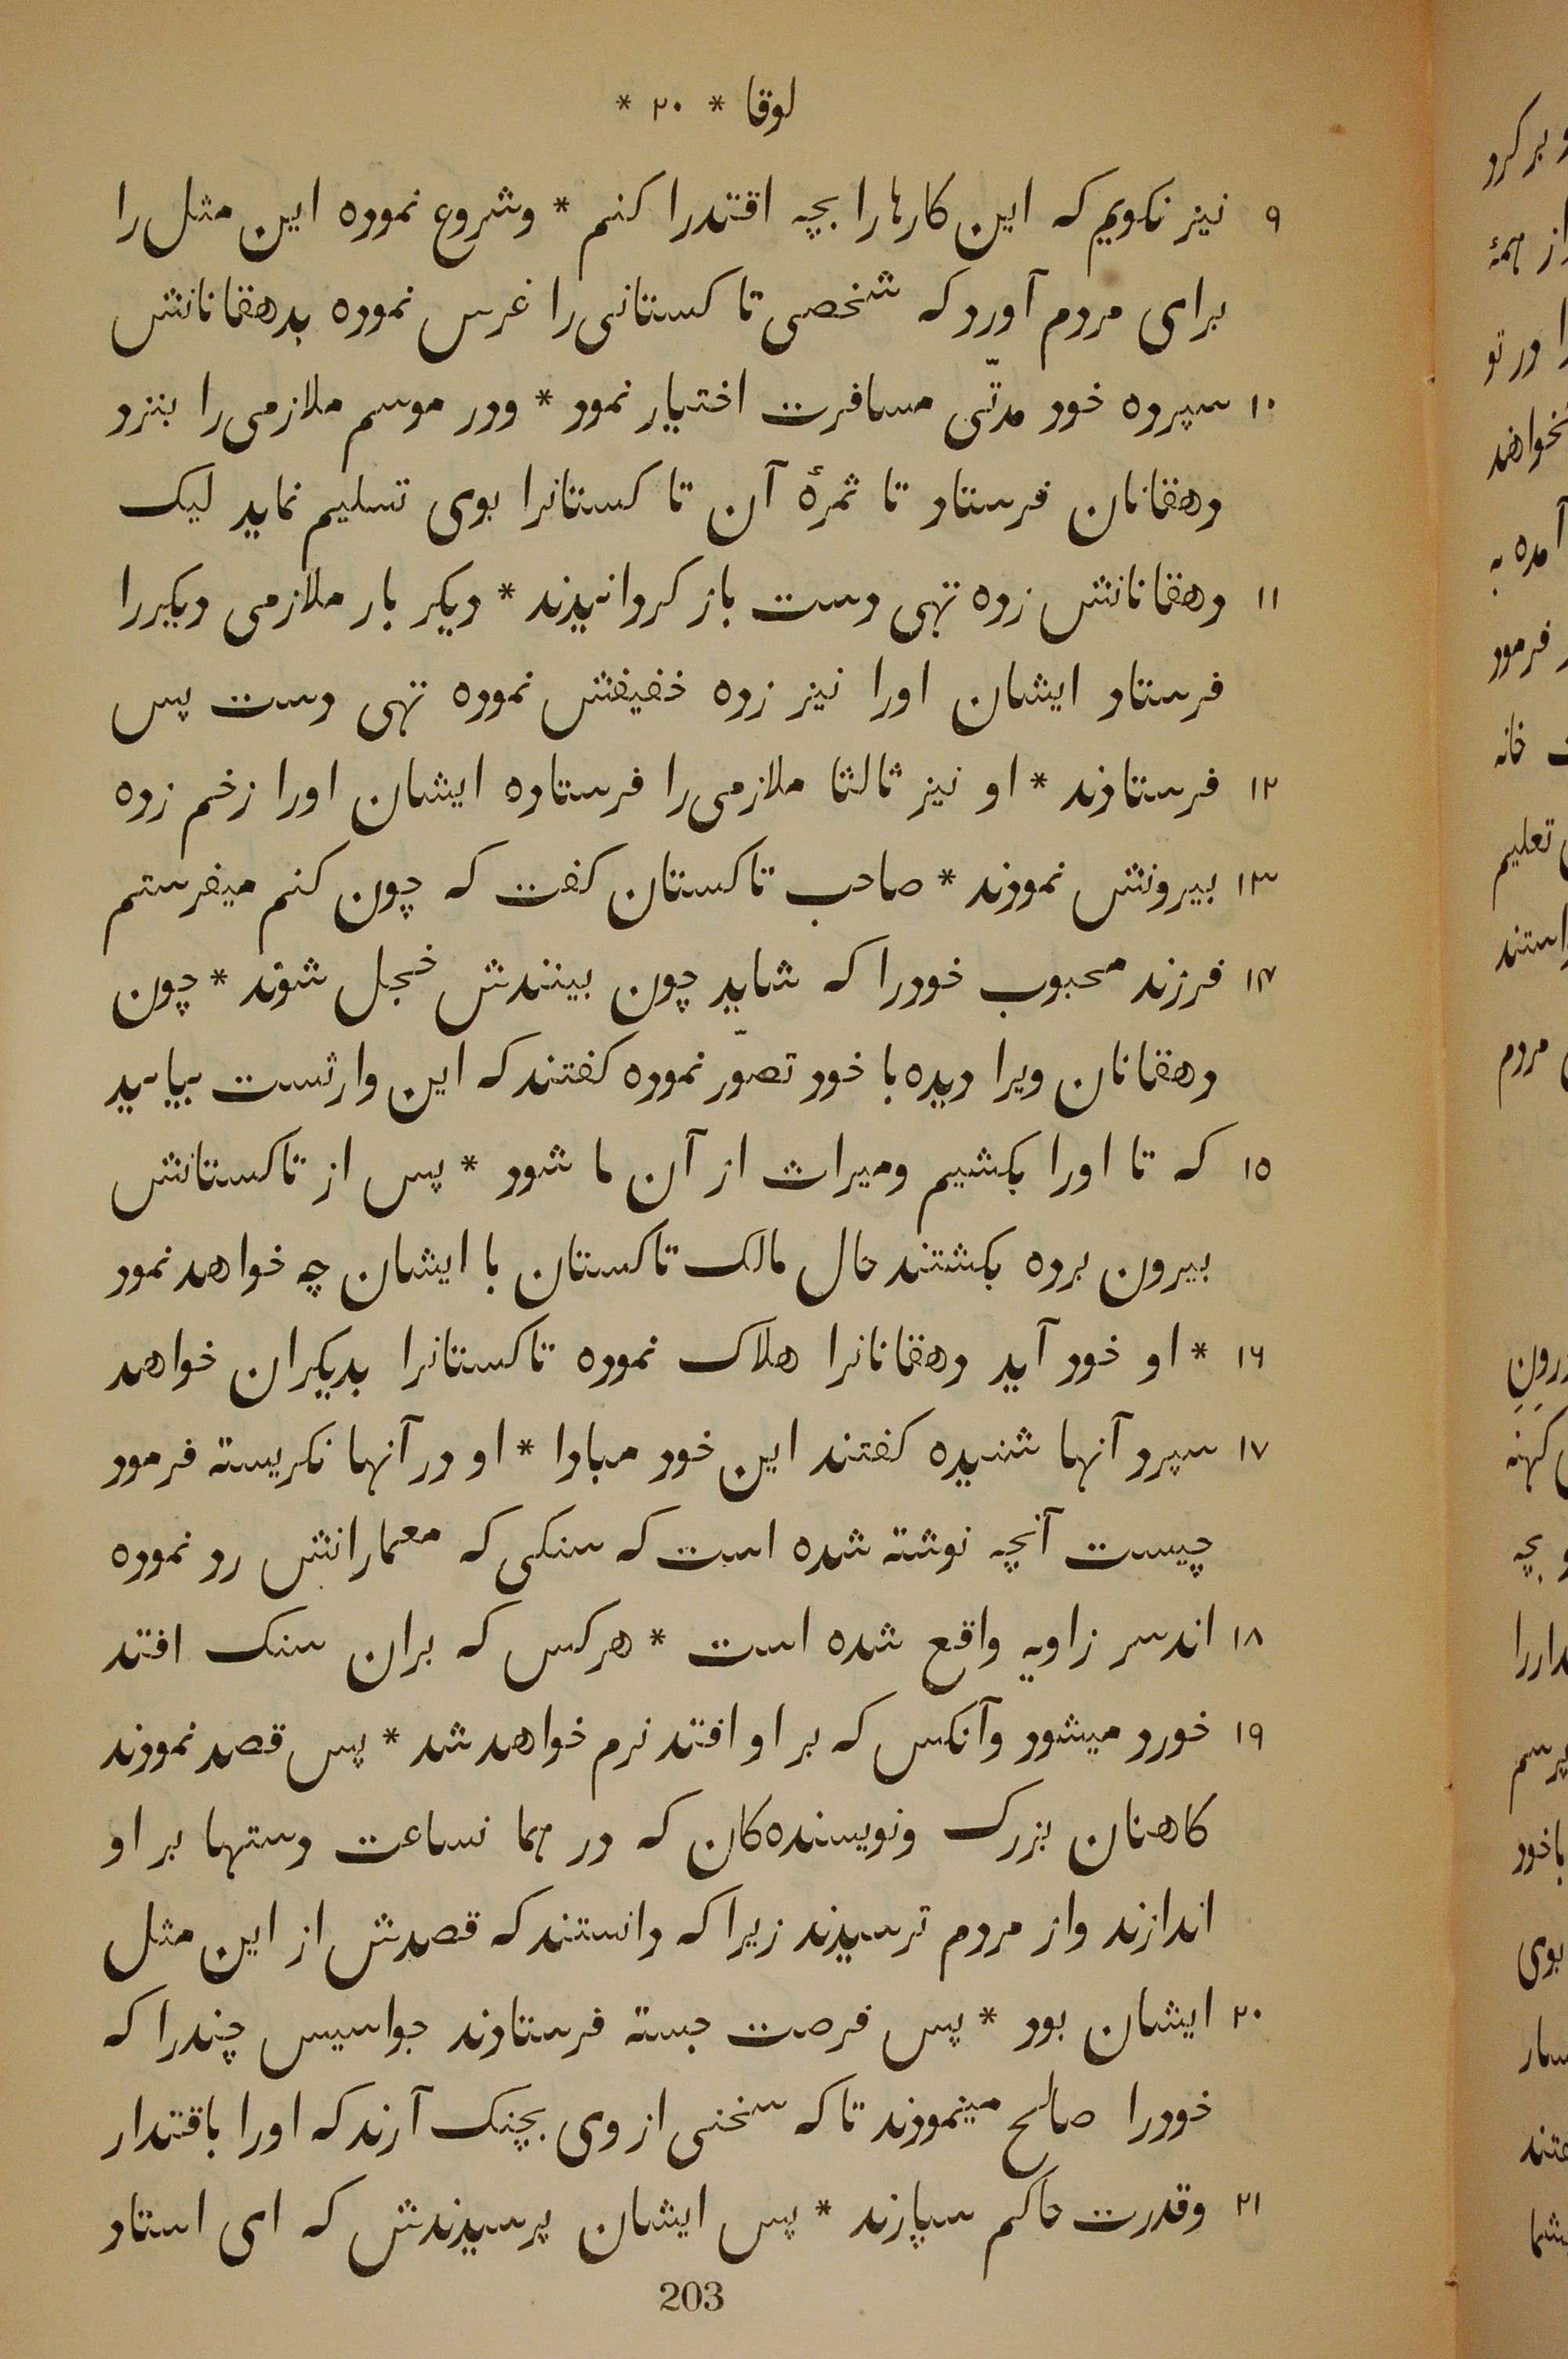 لوقا * ۲۰ *
۹ نیز نکویم که این کارها را بچه اقتدرا کنم * وشروع نموده این مثل را
برای مردم آورد که شخصی تا کستانی را غرس نموده بدهقانانش
۱۰ سپرده خود مدتّی مسافرت اختیار نمود * ودر موسم ملازمی را بنزد
دهقانان فرستاد تا ثمرهٔ آن تا کستانرا بوی تسلیم نماید لیک
۱۱ دهقانانش زده تهی دست باز کردانیدند * دیکر بار ملازمی دیکررا
فرستاد ایشان اورا نیز زده خفیفش نموده تهی دست پس
۱۲ فرستادند * او نیز ثالثا ملازمی را فرستاده ایشان اورا زخم زده
۱۳ بیرونش نمودند * صاحب تاکستان کفت که چون کنم میفرستم
۱۴ فرزند محبوب خودرا که شاید چون بینندش خجل شوند * چون
دهقانان ویرا دیده با خود تصوّر نموده کفتند که این وارثست بیایید
۱۵ که تا اورا بکشیم ومیراث از آن ما شود * پس از تاکستانش
بیرون برده بکشتند حال مالک تاکستان با ایشان چه خواهد نمود
۱۶ * او خود آید دهقانانرا هلاک نموده تاکستانرا بدیکران خواهد
۱۷ سپرد آنها شنیده کفتند این خود مبادا * او در آنها نکریسته فرمود
چیست آنچه نوشته شده است که سنکی که معمارانش رد نموده
۱۸ اندسر زاویه واقع شده است * هرکس که بران سنک افتد
۱۹ خورد میشود وآنکس که بر او افتد نرم خواهد شد * پس قصد نمودند
کاهنان بزرک ونویسنده‌کان که در هما نساعت دستها بر او
اندازند واز مردم ترسیدند زیرا که دانستند که قصدش از این مثل
۲۰ ایشان بود * پس فرصت جسته فرستادند جواسیس چندرا که
خودرا صالح مینمودند تا که سخنی از وی بچنک آرند که اورا باقتدار
۲۱ وقدرت حاکم سپارند * پس ایشان پرسیدندش که ای استاد
203